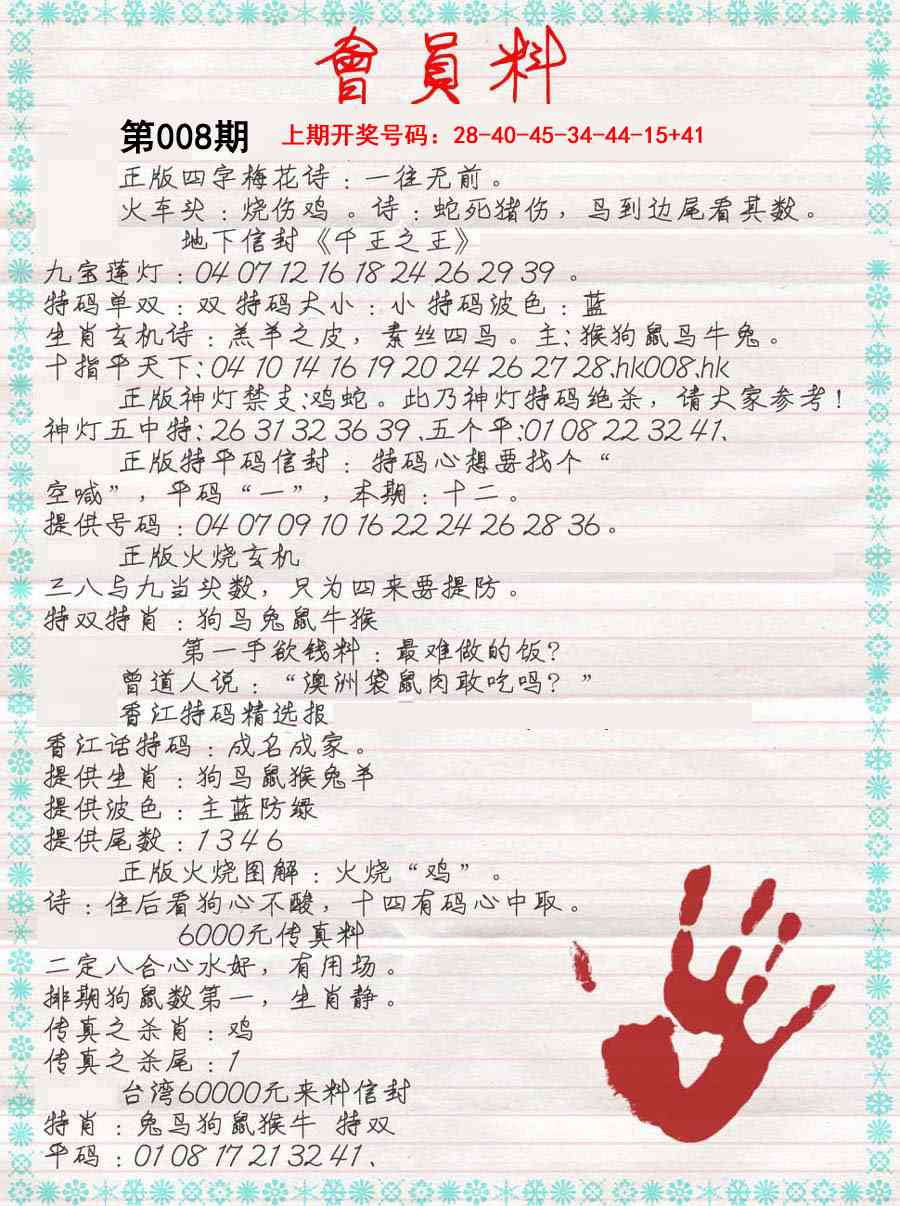 會員料
第008期 上期开奖号码：28-40-45-34-44-15+41
正版四字梅花诗：一往无前。
火车头：烧伤鸡 。诗：蛇死猪伤，鸟到边尾看其数。
地下信封《千王之王》
九宝莲灯：04 07 12 16 18 24 26 29 39 。
特码单双：双 特码大小：小 特码波色：蓝
生肖玄机诗：羔羊之皮，素丝四鸟。主:猴狗鼠鸟牛兔。
十指平天下:04 10 14 16 19 20 24 26 27 28.hk008.hk
正版神灯禁支:鸡蛇。此乃神灯特码绝杀，请大家参考!
神灯五中特:26 31 32 36 39 .五个平:01 08 22 32 41、
正版特平码信封：特码心想要找个“
空喊”，平码“一”，本期：十二。
提供号码：04 07 09 10 16 22 24 26 28 36。
正版火烧玄机
三八与九当头数，只为四来要提防。
特双特肖：狗鸟兔鼠牛猴
第一手欲钱料：最难做的饭?
曾道人说：“澳洲袋鼠肉敢吃吗？”
香江特码精选报
香江话特码：成名成家。
提供生肖：狗鸟鼠猴兔羊
提供波色：主蓝防绿
提供尾数：1 3 4 6
正版火烧图解：火烧“鸡”。
诗：住后看狗心不酸，十四有码心中取。
6000元传真料
二定八合心水好，有用场。
排期狗鼠数第一，生肖静。
传真之杀肖：鸡
传真之杀尾：1
台湾60000元来料信封
特肖：兔鸟狗鼠猴牛 特双
平码：01 08 17 21 32 41、